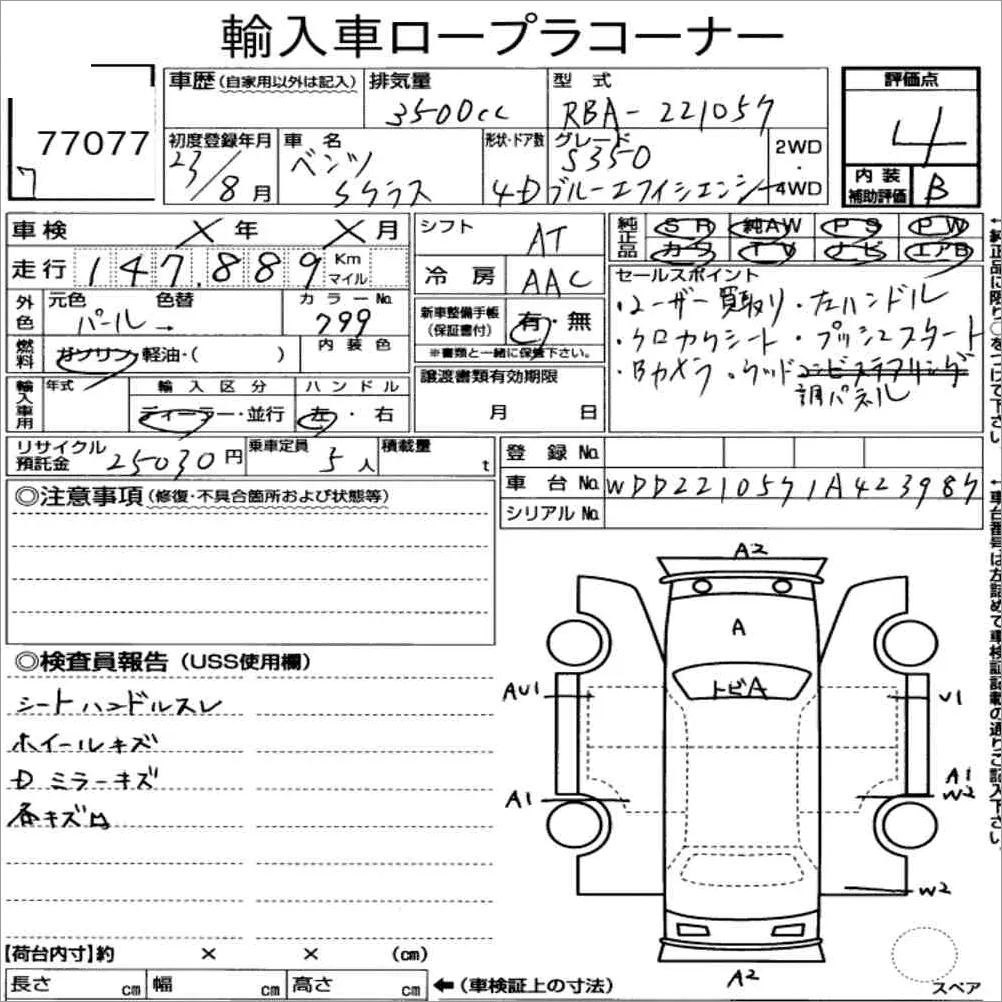 輸入車ロープラコーナー
77077
7
車歴 (自家用以外は記入)
排気量
3500cc
型式
RBA-221057
評価点
4
初度登録年月
23/8月
車名
ベンツ
Sクラス
形状・ドア数
4D
グレード
S350
ブルーエフィシエンシー
2WD
・
4WD
内装
補助評価
B
車検 X年 X月
走行 147.889 Km
マイル
シフト
AT
冷房
AAC
純正品
SR 純AW PS PW
カワ TV ナビ エアB
外色
元色 色替
パール→
カラーNo.
799
新車整備手帳
(保証書付)
有・無
※書類と一緒に保管下さい。
セールスポイント
・ユーザー買取り・左ハンドル
・クロカワシート・プッシュスタート
・Bカメラ・ウッド
調パネル
燃料
ガソリン・軽油・( )
内装色
輸入車用
年式
輸入区分
ディーラー・並行
ハンドル
左・右
譲渡書類有効期限
月 日
リサイクル
預託金
25030円
乗車定員
5人
積載量
t
登録No.
車台No. WDD2210571A423987
シリアルNo.
◎注意事項(修復・不具合箇所および状態等)
◎検査員報告(USS使用欄)
シートハンドルスレ
ホイールキズ
Dミラーキズ
各キズ凹
A2
A
トビA
AU1
U1
A1
A1
W2
W2
A2
スペア
【荷台内寸】約 × × (cm)
長さ cm 幅 cm 高さ cm
←(車検証上の寸法)
←純正品に限り○をつけて下さい
←車台番号は左詰めで車検証記載の通りご記入下さい。